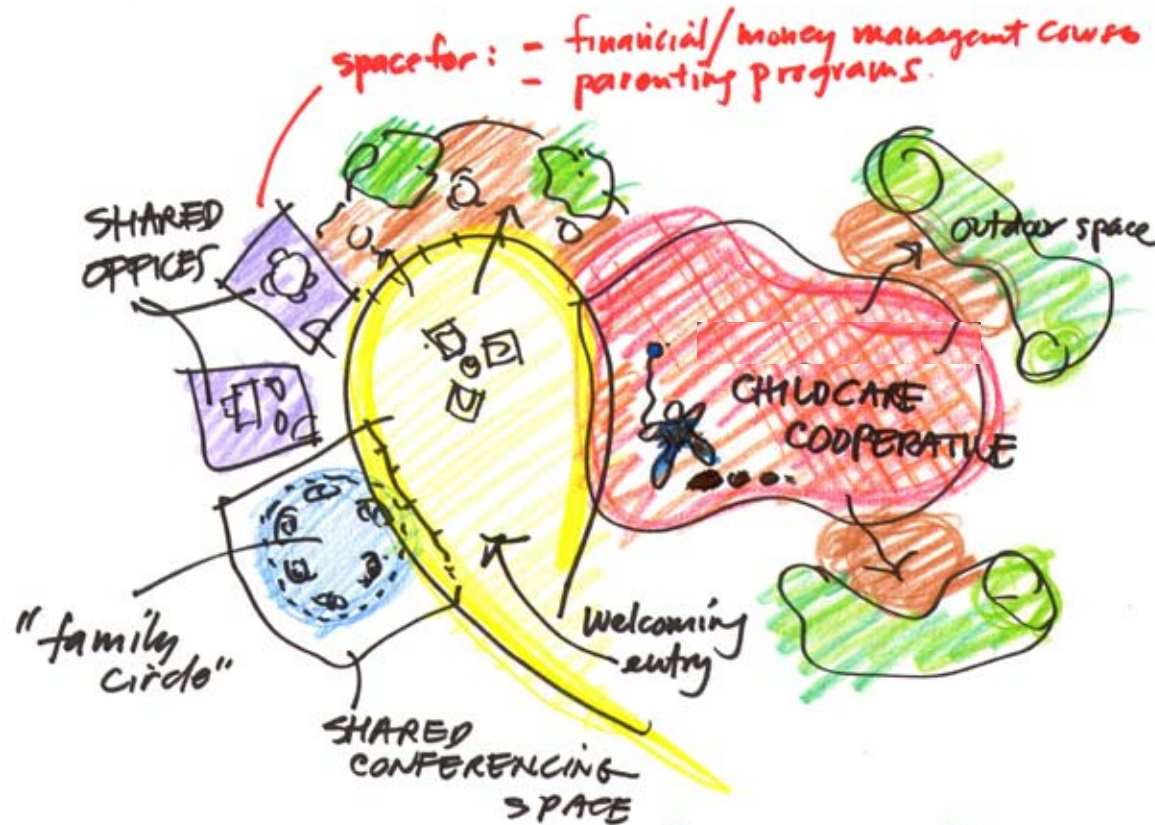 space for: - financial/money managemt courses
- parenting programs.
SHARED
OFFICES
outdoor space
CHILDCARE
COOPERATIVE
"family
circle"
welcoming
entry
SHARED
CONFERENCING
SPACE